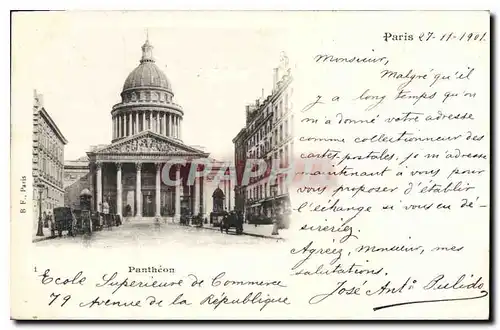 Paris 27-11-1901.
Monsieur,
Malgré qu'il
y a long temps qu'on
m'a donné votre adresse
comme collectionneur des
cartes postales, je m'adresse
maintenant a vous pour
vous proposer d'établir
l'échange si vous eu dé-
sireriez.
Agréez, Monsieur, mes
salutations.
José Antº Pulido
CPARAMA
B F, Paris
1
Panthéon
Ecole Superieure de Commerce
79 Avenue de la République